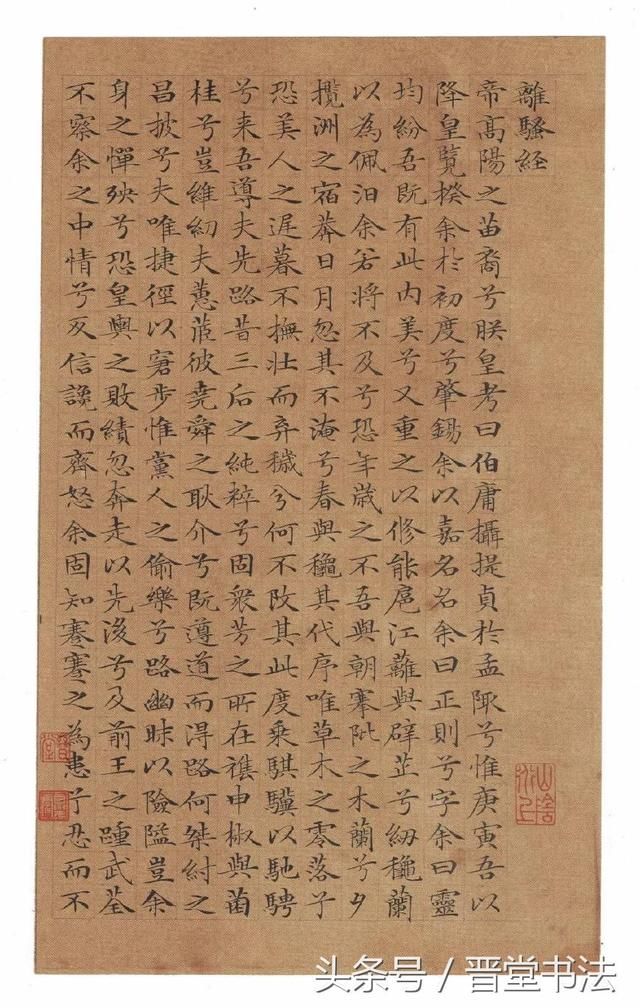 離騷経
帝高陽之苗裔兮朕皇考曰伯庸攝提貞於孟陬兮惟庚寅吾以
降皇覽揆余於初度兮肇錫余以嘉名名余曰正則兮字余曰靈
均紛吾既有此内美兮又重之以修能扈江蘺與辟芷兮紉穐蘭
以為佩汨余若將不及兮恐年歳之不吾與朝搴阰之木蘭兮夕
攬洲之宿莽日月忽其不淹兮春與穐其代序唯草木之零落兮
恐美人之遲暮不撫壯而弃穢兮何不改其此度乗騏驥以馳騁
兮来吾導夫先路昔三后之純粹兮固衆芳之所在襍申椒與菌
桂兮豈維紉夫蕙茝彼堯舜之耿介兮既遵道而得路何桀紂之
昌披兮夫唯捷徑以窘步惟黨人之偷樂兮路幽昧以險隘豈余
身之憚殃兮恐皇輿之敗績忽奔走以先後兮及前王之踵武荃
不察余之中情兮反信讒而齊怒余固知謇謇之為患兮忍而不
头条号/晋堂书法